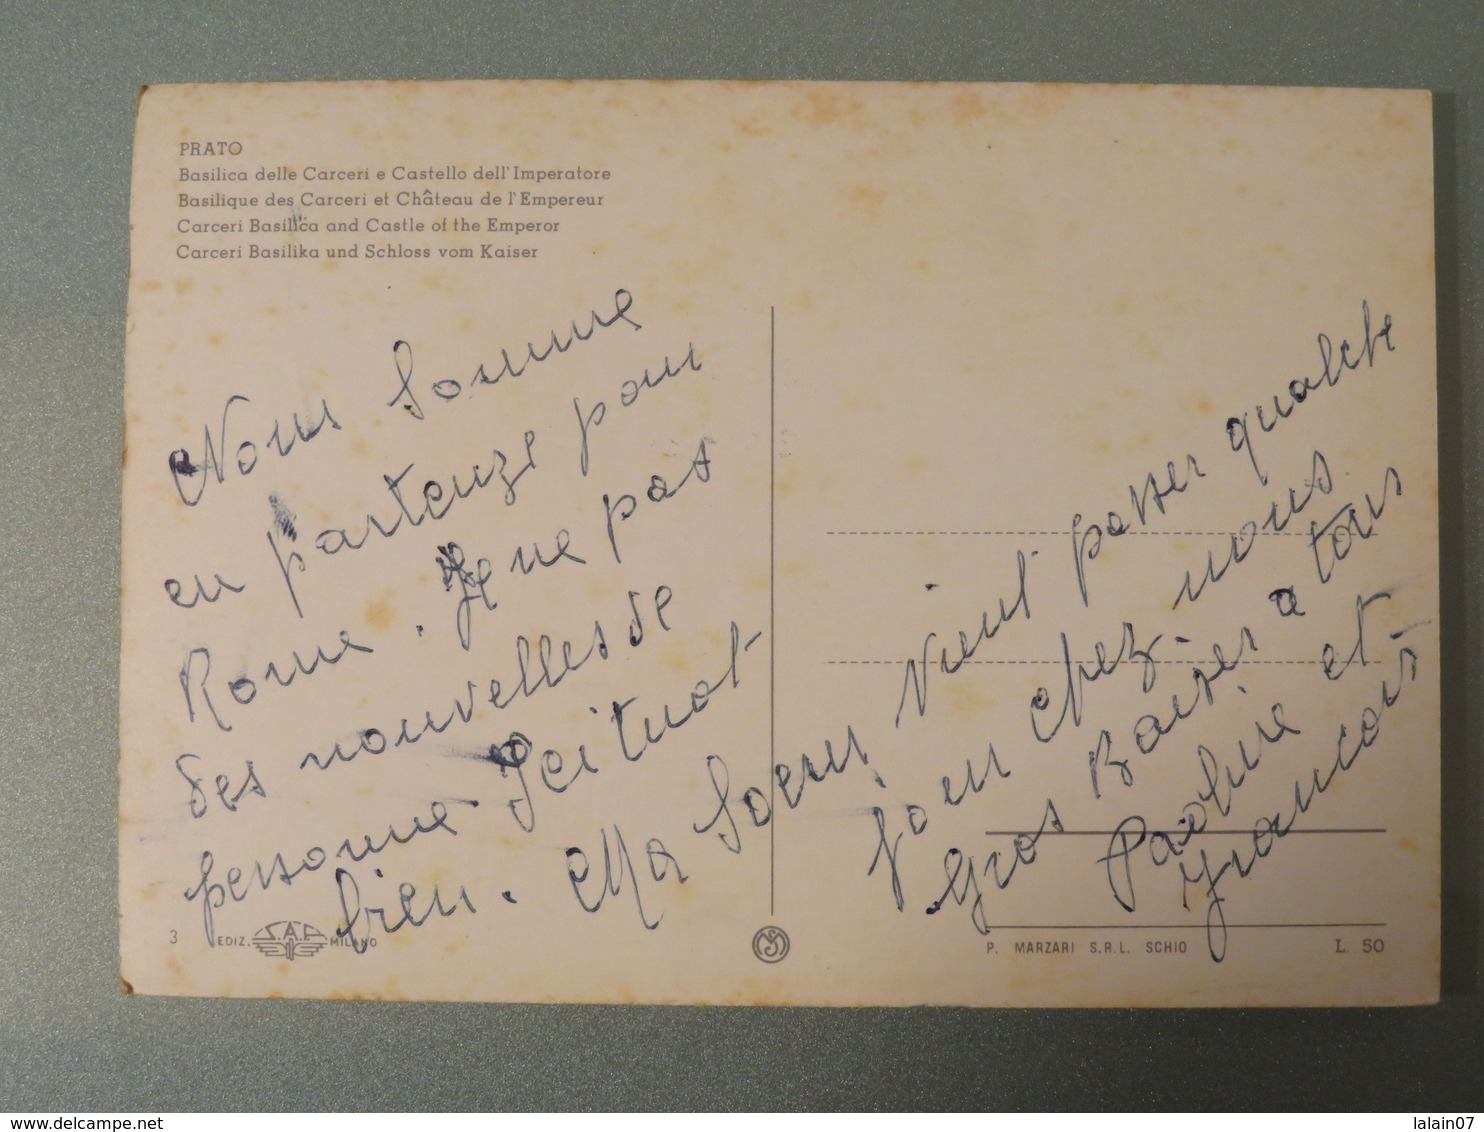 PRATO
Basilica delle Carceri e Castello dell'Imperatore
Basilique des Carceri et Château de l'Empereur
Carceri Basilica and Castle of the Emperor
Carceri Basilika und Schloss vom Kaiser
Nous somme
en partenze pour
Rome. Je ne pas
des nouvelles de
personne.
bien. Ma Soeur vient passer qualche
Jour chez nous
Gros Baises a tous
Paoline et
Francois
3 EDIZ. S.A.F. MILANO
P. MARZARI S.R.L. SCHIO L. 50
delcampe.net
lalain07